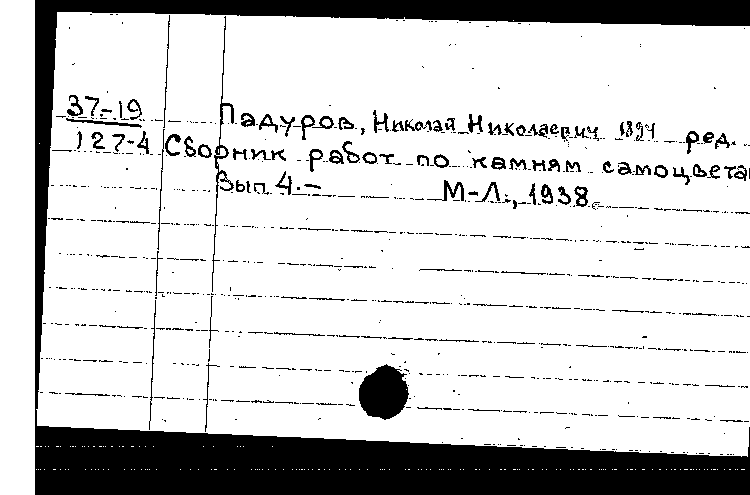 37-19
127-4
Падуров, Николай Николаевич 1894 ред.
Сборник работ по камням самоцветам
Вып 4.— М-Л., 1938.